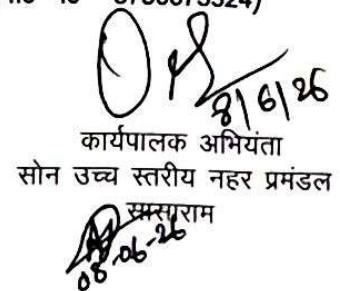 8/6/26
कार्यपालक अभियंता
सोन उच्च स्तरीय नहर प्रमंडल
सासाराम
08-06-26